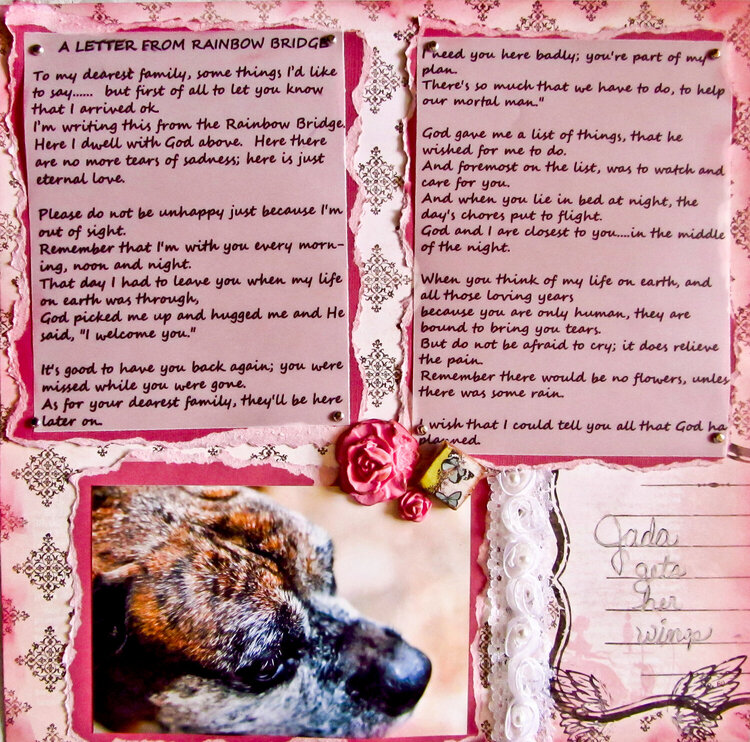 A LETTER FROM RAINBOW BRIDGE
To my dearest family, some things I'd like
to say...... but first of all to let you know
that I arrived ok.
I'm writing this from the Rainbow Bridge.
Here I dwell with God above. Here there
are no more tears of sadness; here is just
eternal love.
Please do not be unhappy just because I'm
out of sight.
Remember that I'm with you every morn-
ing, noon and night.
That day I had to leave you when my life
on earth was through,
God picked me up and hugged me and He
said, "I welcome you."
It's good to have you back again; you were
missed while you were gone.
As for your dearest family, they'll be here
later on.
I need you here badly; you're part of my
plan.
There's so much that we have to do, to help
our mortal man."
God gave me a list of things, that he
wished for me to do.
And foremost on the list, was to watch and
care for you.
And when you lie in bed at night, the
day's chores put to flight.
God and I are closest to you....in the middle
of the night.
When you think of my life on earth, and
all those loving years
because you are only human, they are
bound to bring you tears.
But do not be afraid to cry; it does relieve
the pain.
Remember there would be no flowers, unles
there was some rain.
I wish that I could tell you all that God ha
planned.
Jada
gets
her
wings